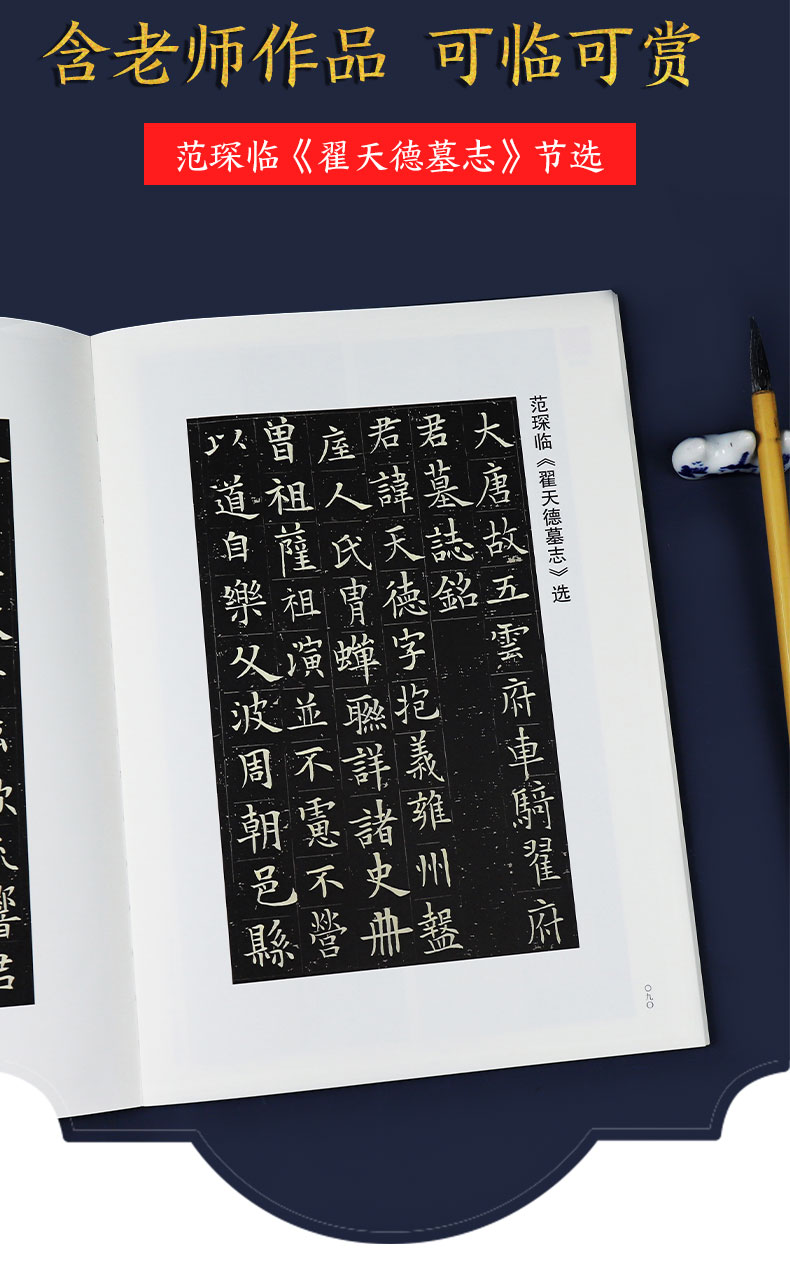 含老师作品 可临可赏
范琛临《翟天德墓志》节选
范琛临《翟天德墓志》选
大唐故五雲府車騎翟府
君墓誌銘
君諱天德字抱義雍州盩
厔人氏胄蟬聯詳諸史冊
曾祖薩祖演並不憲不營
以道自樂父波周朝邑縣
〇九〇